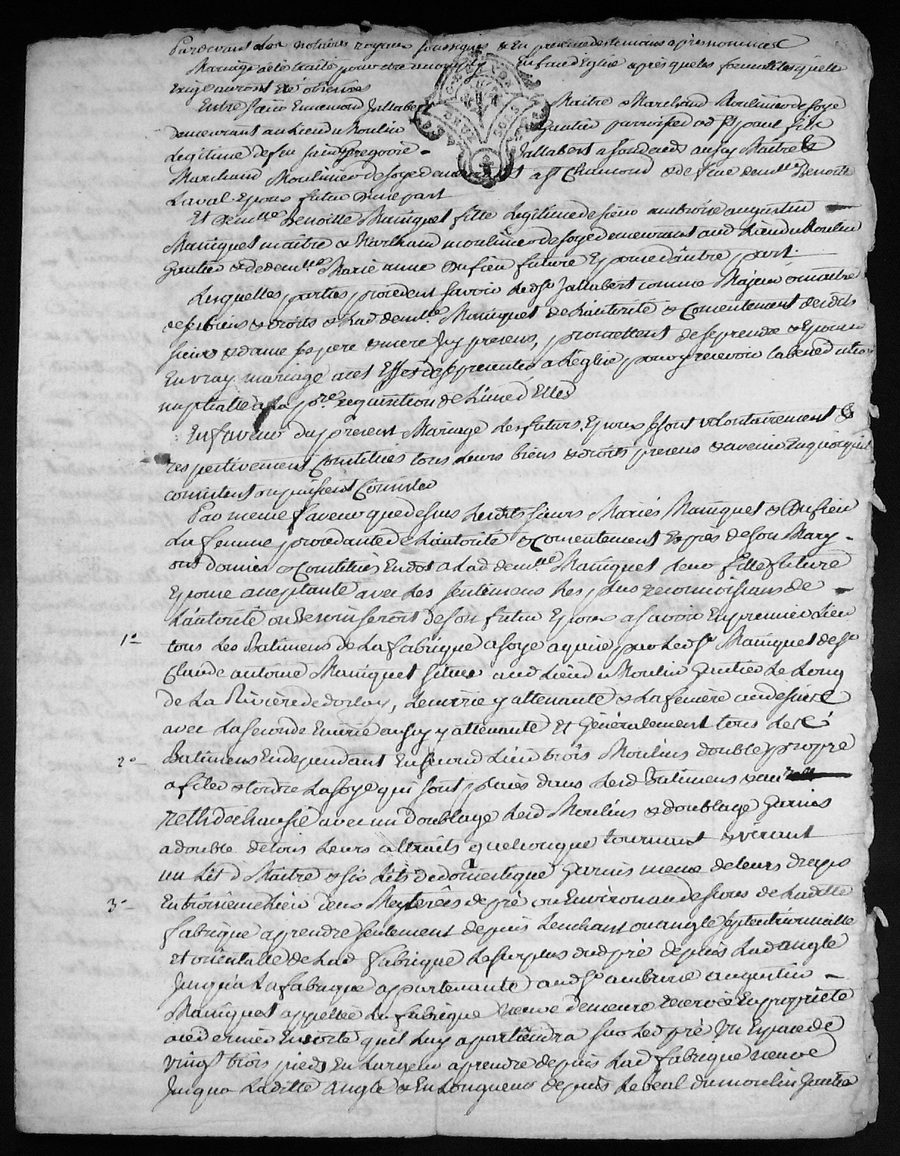 Pardevant Les notaires royaux soussignés & En presence des temoins apres nommés
Mariage a été traité pour etre accomply En face d'Eglise apres que les formalités quelle
Exige auront été observées
Entre sieur Ennemond Jallabert Maitre & Marchand Moulinier de soye
demeurant au Lieu du Moulin Gautier parroisse de St paul fils
Legitime de feu sieur Gregoire Jallabert a son decés aussy Maitre &
Marchand Moulinier de soye demeurant a St Chamond & de feue demlle Benoite
Laval Epoux futur d'une part
Et demlle Benoite Maniquet fille Legitime de sieur ambroise augustin
Maniquet maitre & Marchand moulinier de soye demeurant aud Lieu du Moulin
Gautier & de demlle Marie anne Dufieu future Epouse d'autre part
Lesquelles parties procedent savoir Led Sr Jallabert comme Majeur & maitre
de ses biens & droits & Lad demlle Maniquet de L'autorité & Consentement desdits
sieur & dame ses pere & mere Icy presens, promettent de se prendre & Epouser
En vray mariage a cet Effet de se presenter a L'eglise pour y recevoir La benediction
nuptialle a La pre requisition de L'une d'Elles
En faveur du present Mariage Les futurs Epoux se sont volontairement &
respectivement Constitués tous Leurs biens & droits presens & avenir En quoi qu'ils
consistent ou puissent Consister
Par meme faveur que dessus Lesdits sieurs Mariés Maniquet & Dufieu
La femme procedante de L'autorité & Consentement Exprès de son Mary
ont donnés & Constitués En dot a Lad demlle Maniquet Leur fille future
Epouse acceptante avec Les sentimens Les plus reconnoissans de
L'autorité que dessus de son futur Epoux a savoir En premier Lieu
1° tous Les Batimens de La fabrique a soye aquise par Led Sr Maniquet de Sr
Claude antoine Maniquet situés aud Lieu du Moulin Gautier Le Long
de La Riviere de dorlay, L'ecurie y attenante & La feniere au dessus
avec La seconde Ecurie aussy y attenante Et Généralement tous Les
2° Batimens En dependant En second Lieu trois Moulins double propre
a filer & tordre La soye qui sont placés dans Lesd Batimens & au
rez de chaussée avec un Doublage Lesd Moulins & doublage Garnis
a double de tous Leurs attraits quelconque tournant & virant
un Lit de Maitre & six Lits de domestique Garnis meme de Leurs draps
3° En troisieme Lieu deux Meyterées de pré ou Environ au dessous de Ladite
fabrique a prendre seulement depuis L'enchant ou angle septentrionalle
et orientalle de Lad fabrique Le surplus dud pré depuis Lad angle
Jusqu'a La fabrique appartenante aud Sr ambroise augustin
Maniquet appellée La fabrique Neuve demeure reservé En propriété
a ce dernier En sorte qu'il Luy apartiendra sur Led pré Un Espace de
vingt trois pieds En Largeur a prendre depuis Lad fabrique neuve
Jusqu'a Laditte angle & En Longueur depuis Le beal du moulin Gautier